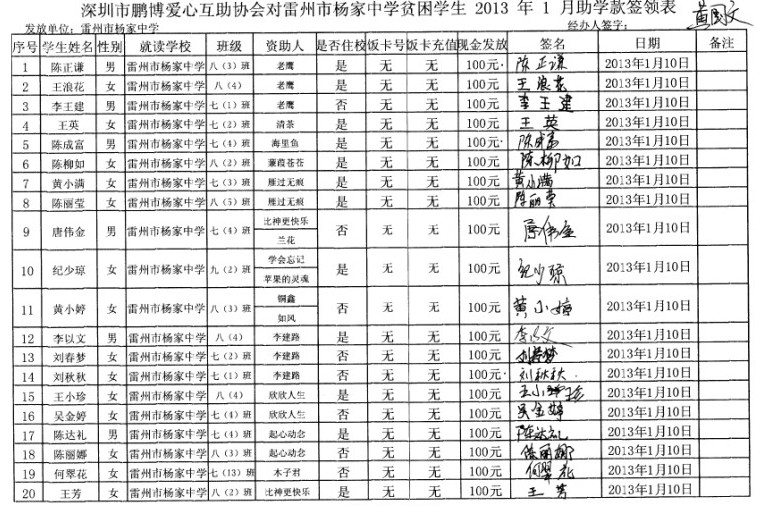 深圳市鹏博爱心互助协会对雷州市杨家中学贫困学生 2013 年 1 月助学款签领表
发放单位：雷州市杨家中学 经办人签字：黄国文
序号 学生姓名 性别 就读学校 班级 资助人 是否住校 饭卡号 饭卡充值 现金发放 签名 日期 备注
1 陈正谦 男 雷州市杨家中学 八（3）班 老鹰 是 无 无 100元 陈正谦 2013年1月10日
2 王浪花 女 雷州市杨家中学 八（4） 老鹰 是 无 无 100元 王浪花 2013年1月10日
3 李王建 男 雷州市杨家中学 七（1）班 老鹰 否 无 无 100元 李王建 2013年1月10日
4 王英 女 雷州市杨家中学 七（2）班 清茶 是 无 无 100元 王英 2013年1月10日
5 陈成富 男 雷州市杨家中学 七（4）班 海里鱼 是 无 无 100元 陈成富 2013年1月10日
6 陈柳如 女 雷州市杨家中学 八（2）班 蒹葭苍苍 是 无 无 100元 陈柳如 2013年1月10日
7 黄小满 女 雷州市杨家中学 七（3）班 雁过无痕 是 无 无 100元 黄小满 2013年1月10日
8 陈丽莹 女 雷州市杨家中学 八（5）班 雁过无痕 是 无 无 100元 陈丽莹 2013年1月10日
9 唐伟金 男 雷州市杨家中学 七（4）班 比神更快乐 兰花 否 无 无 100元 唐伟金 2013年1月10日
10 纪少琼 女 雷州市杨家中学 九（2）班 学会忘记 苹果的灵魂 是 无 无 100元 纪少琼 2013年1月10日
11 黄小婷 女 雷州市杨家中学 八（3）班 铜鑫 如风 否 无 无 100元 黄小婷 2013年1月10日
12 李以文 男 雷州市杨家中学 八（4） 李建路 是 无 无 100元 李以文 2013年1月10日
13 刘春梦 女 雷州市杨家中学 七（2）班 李建路 否 无 无 100元 刘春梦 2013年1月10日
14 刘秋秋 女 雷州市杨家中学 七（1）班 李建路 否 无 无 100元 刘秋秋 2013年1月10日
15 王小珍 女 雷州市杨家中学 八（4） 欣欣人生 是 无 无 100元 王小珍 2013年1月10日
16 吴金婷 女 雷州市杨家中学 七（4）班 欣欣人生 否 无 无 100元 吴金婷 2013年1月10日
17 陈达礼 男 雷州市杨家中学 七（4）班 起心动念 是 无 无 100元 陈达礼 2013年1月10日
18 陈丽娜 女 雷州市杨家中学 八（3）班 起心动念 否 无 无 100元 陈丽娜 2013年1月10日
19 何翠花 女 雷州市杨家中学 七（13）班 木子君 否 无 无 100元 何翠花 2013年1月10日
20 王芳 女 雷州市杨家中学 八（2）班 比神更快乐 是 无 无 100元 王芳 2013年1月10日